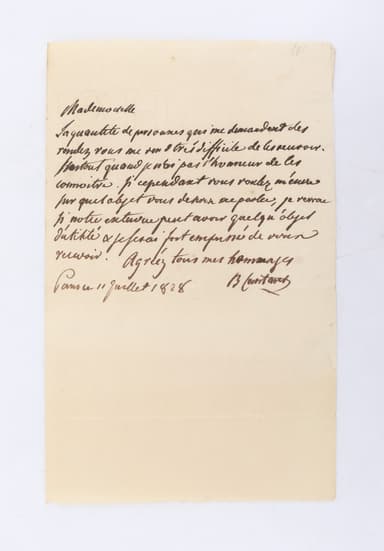 Mademoiselle
La quantité de personnes qui me demandent des
rendez vous me rend très difficile de les recevoir.
surtout quand je n'ai pas l'honneur de les
connoitre. Si cependant vous voulez m'écrire
sur quel objet vous desirez me parler, je verrai
si notre entrevue peut avoir quelqu'objet
d'utilité & je serai fort empressé de vous
recevoir. Agréez tous mes hommages
Paris ce 11 Juillet 1828 B Constant